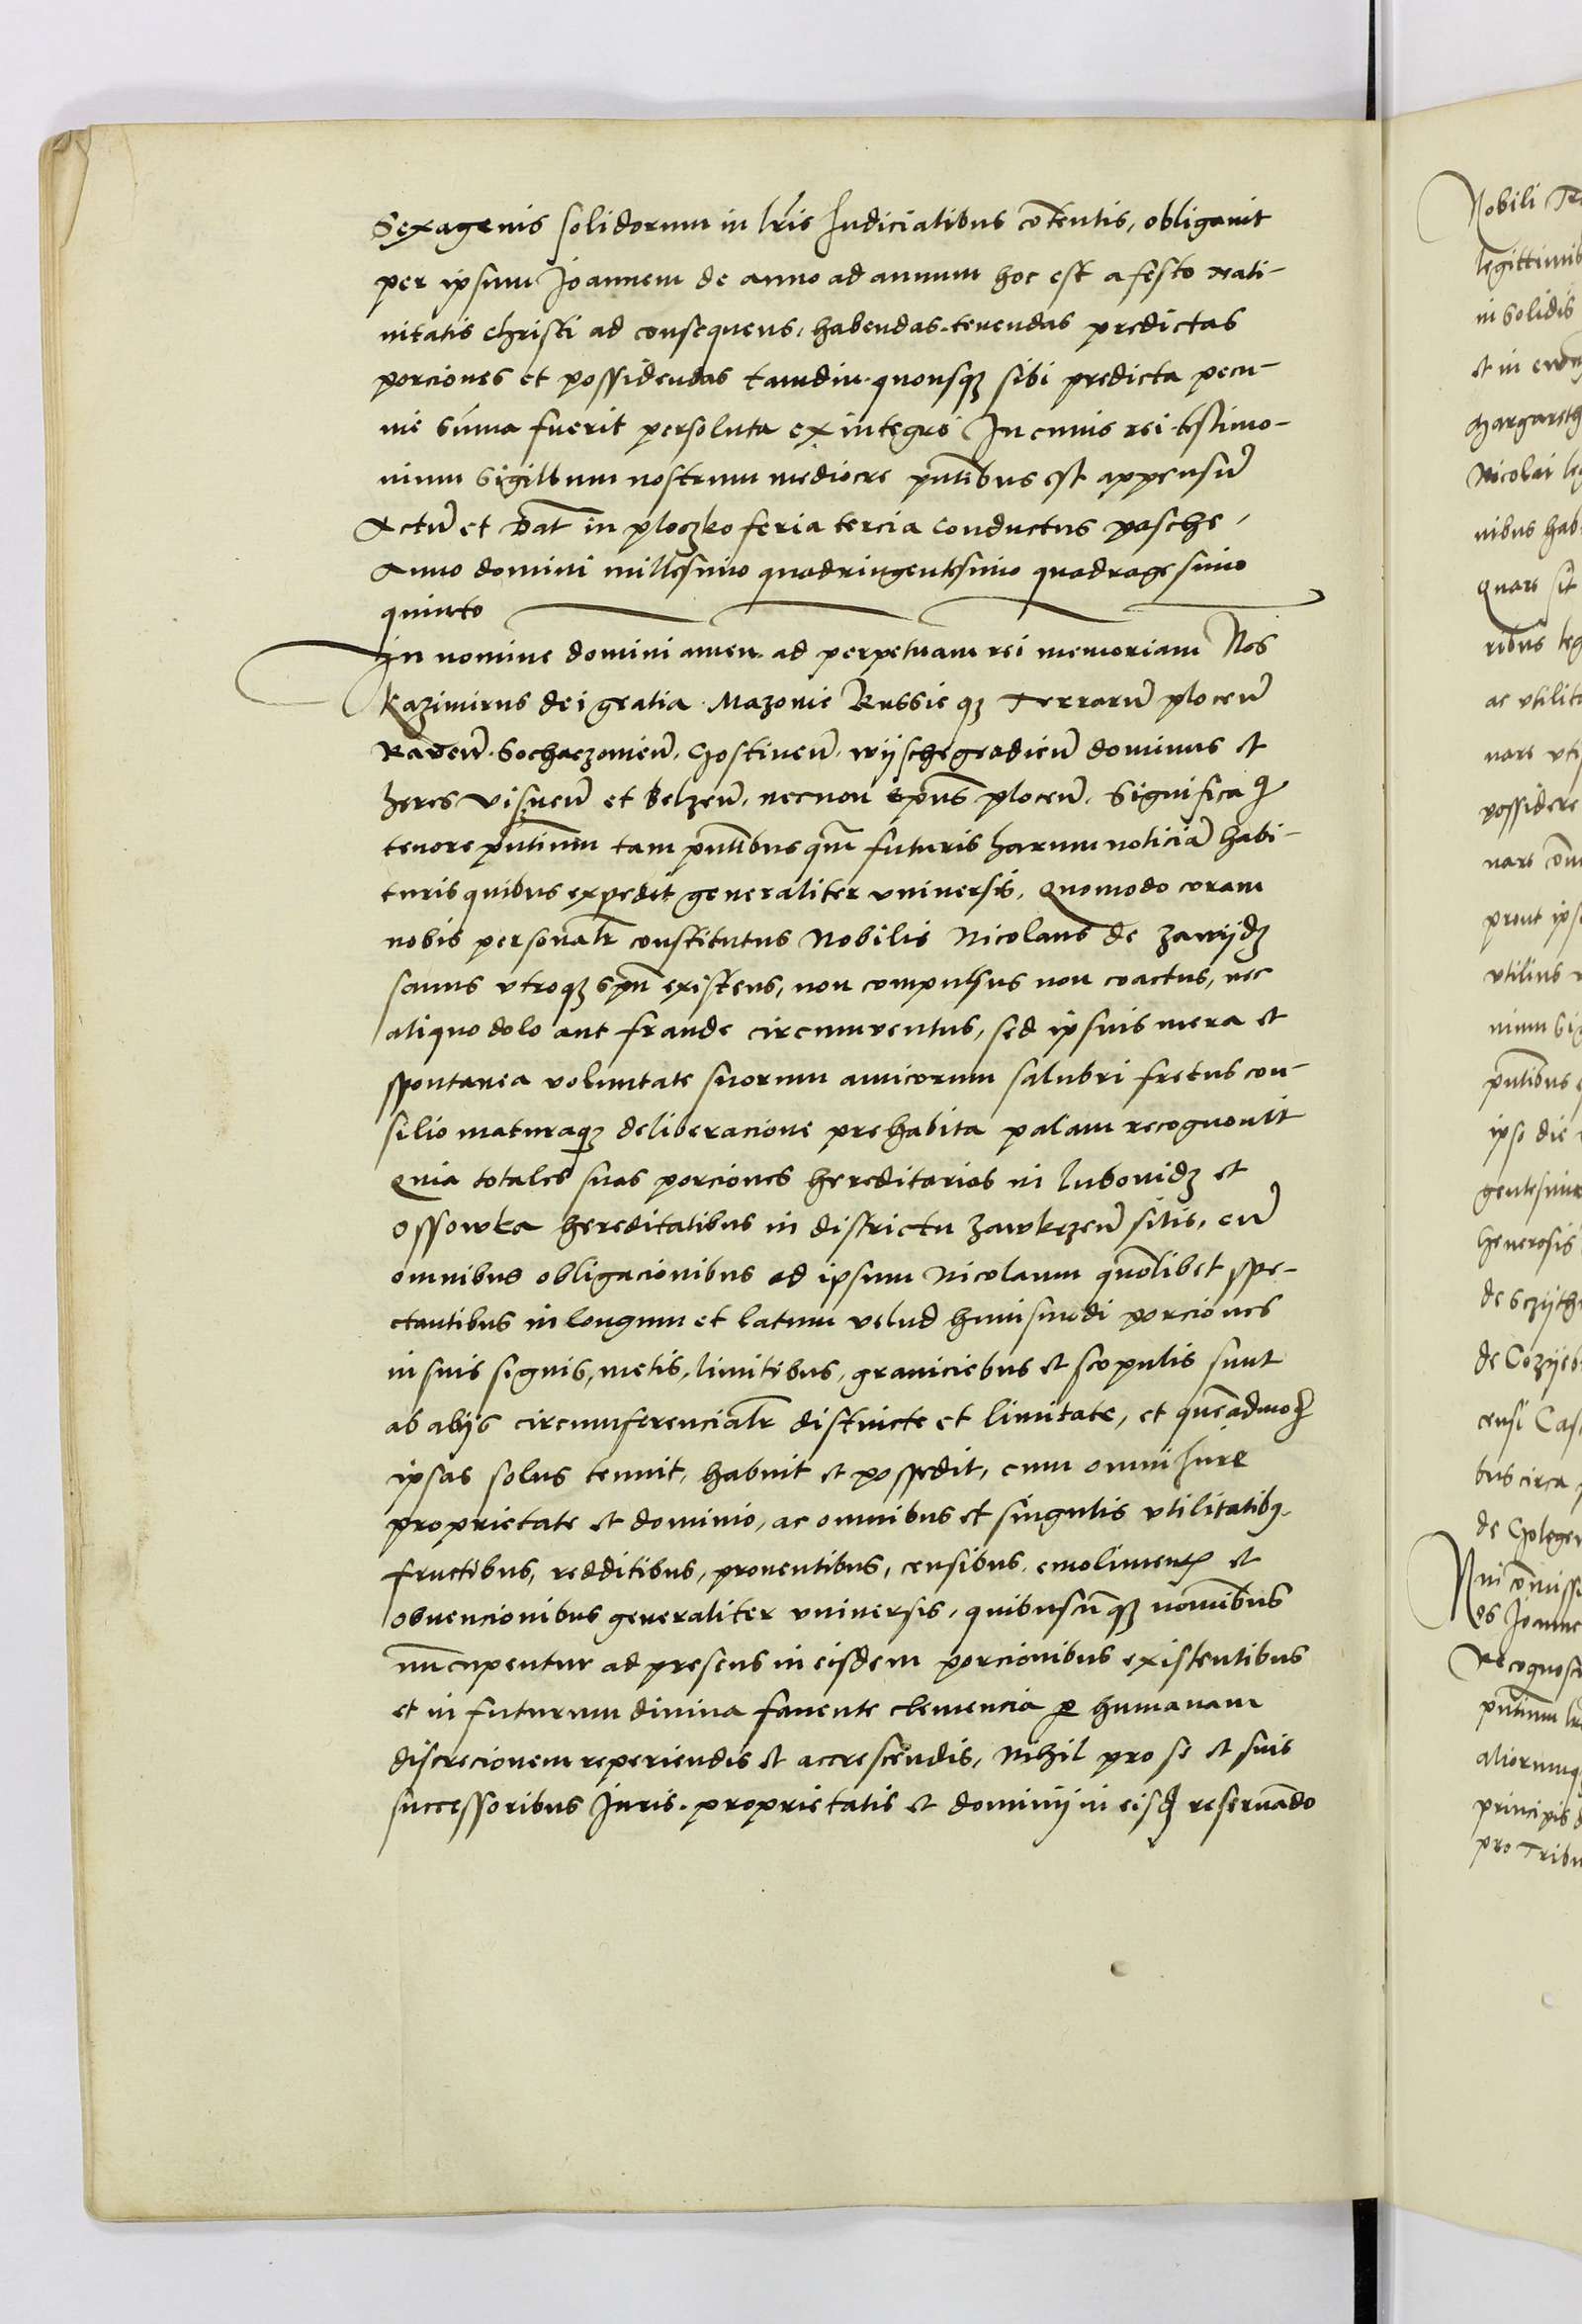 Sexagenis solidorum in lr̃is Iudicialibus cõtentis, obligauit
per ipsum Joannem de anno ad annum hoc est a festo nati-
uitatis Christi ad consequens, habendas tenendas predictas
porciones et possidendas tamdiu quousqȝ sibi predicta pecu-
nie sũma fuerit persoluta ex integro In cuius rei testimo-
nium Sigillum nostrum mediocre pñtibus est appensũ
Actũ et Dat̃ in ploczko feria tercia Conductus pasche,
Anno domini millesimo quadringentesimo quadragesimo
quinto
In nomine domini amen ad perpetuam rei memoriam Nos
Kazimirus dei gratia Mazouie Russie qȝ Terrarũ plocen̄
Raven̄ Sochaczouien̄, Gostinen̄, wijschegradien̄ dominus et
heres visnen̄ et Belzen̄, necnon Ep̃us plocen̄, Significaꝯ
tenore pñtium tam pñtibus qũm futuris harum noticiã habi-
turis quibus expedit generaliter vniuersis, Quomodo coram
nobis personalr̃ constitutus Nobilis Nicolaus de zawijdz
sanus vtroqȝ spũ existens, non compulsus non coactus, nec
aliquo dolo aut fraude circumuentus, sed ipsius mera et
spontanea voluntate suorum amicorum salubri fretus con-
silio maturaqȝ deliberacione prehabita palam recognouit
Quia totales suas porciones hereditarias in lubouidz et
Ossowka hereditatibus in districtu zawkrzen̄ sitis, cũ
omnibus obligacionibus ad ipsum Nicolaum quõlibet spe-
ctantibus in longum et latum velud huiusmodi porciones
in suis signis, metis, limitibus, graniciebus et scopulis sunt
ab alijs circumferencialr̃ distincte et limitate, et quẽadmoꝺ
ipsas solus tenuit, habuit et possedit, cum omni Iure
proprietate et dominio, ac omnibus et singulis vtilitatibꝫ
fructibus, redditibus, prouentibus, censibus emolimentꝭ et
obuencionibus generaliter vniuersis, quibuscũqȝ nomĩbus
nũcupentur ad presens in eisdem porcionibus existentibus
et in futurum diuina fauente clemencia ꝑ humanam
discrecionem reperiendis et accrescendis, Nihil pro se et suis
successoribus Juris proprietatis et dominij in eisꝺ reseruãdo